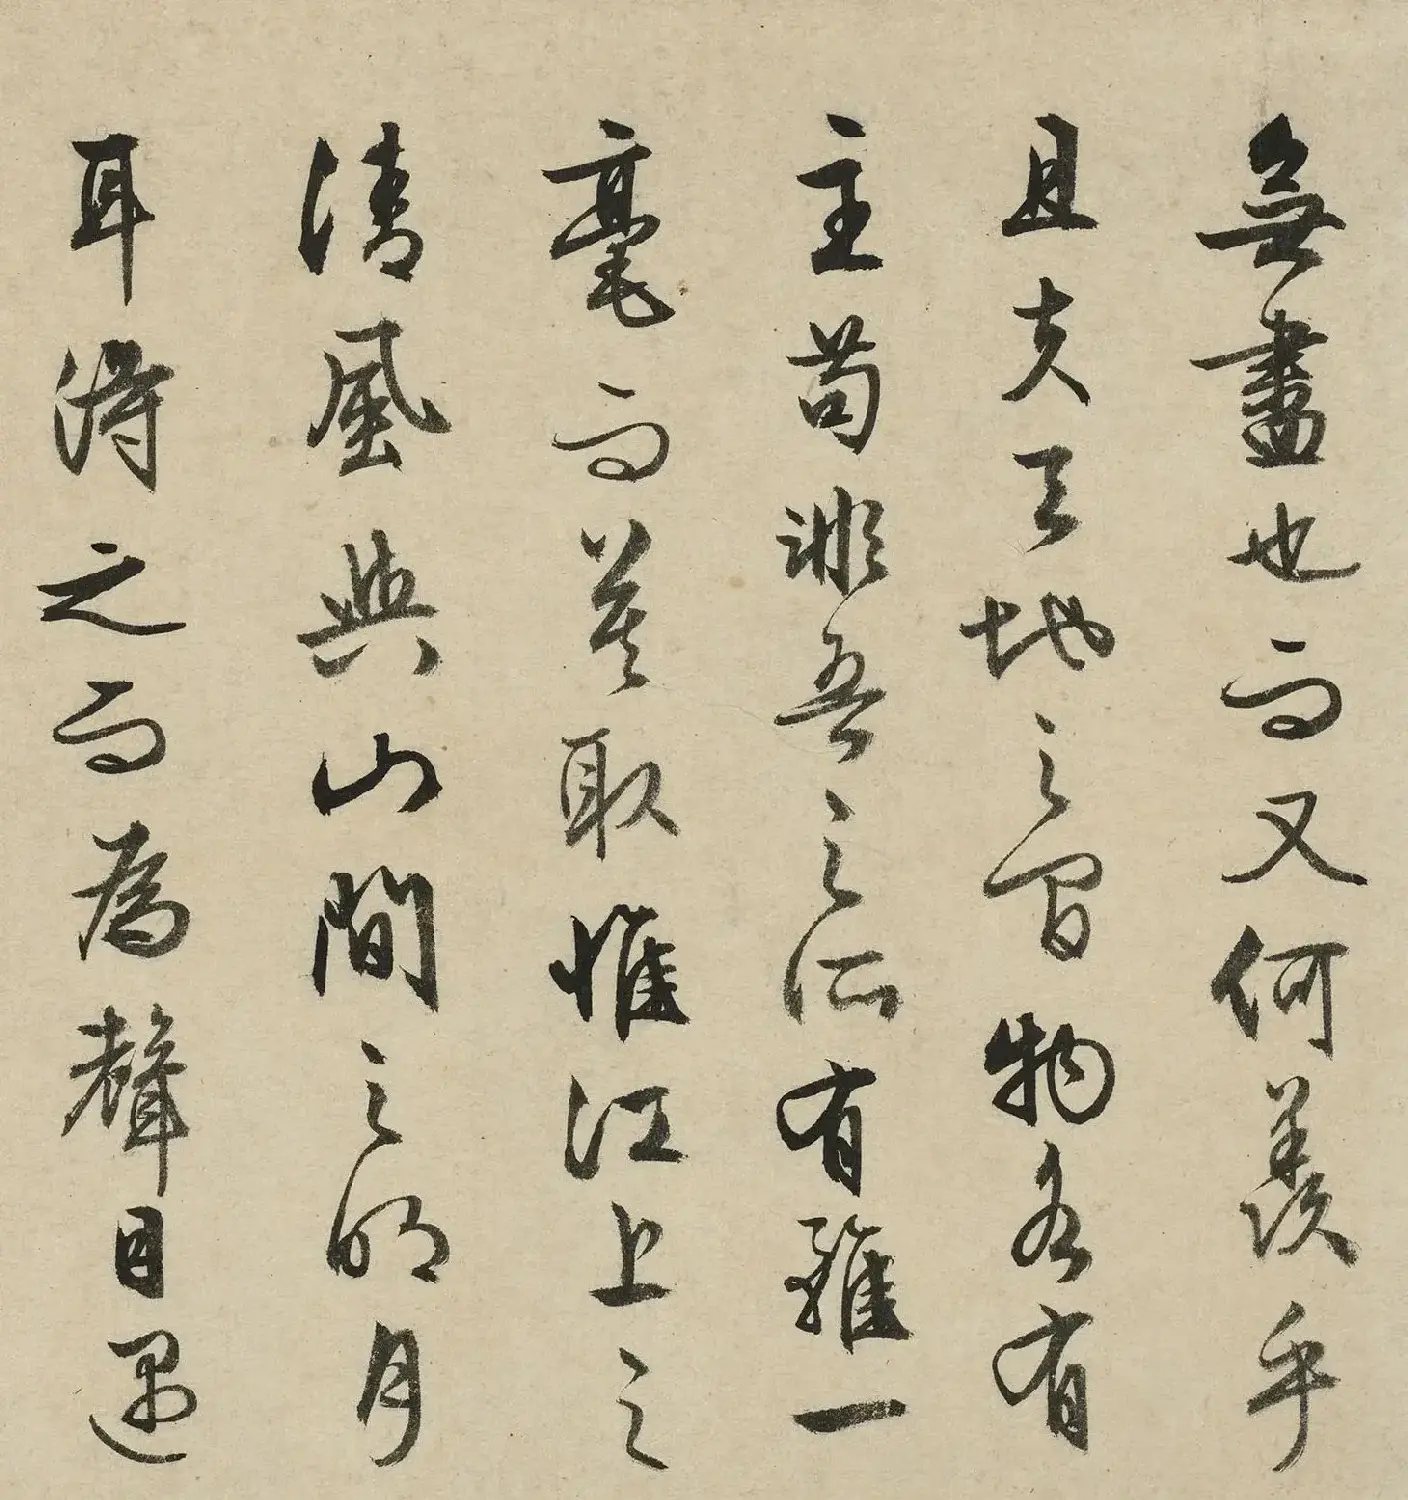 無盡也而又何羨乎
且夫天地之間物各有
主苟非吾之所有雖一
毫而莫取惟江上之
清風與山間之明月
耳得之而為聲目遇